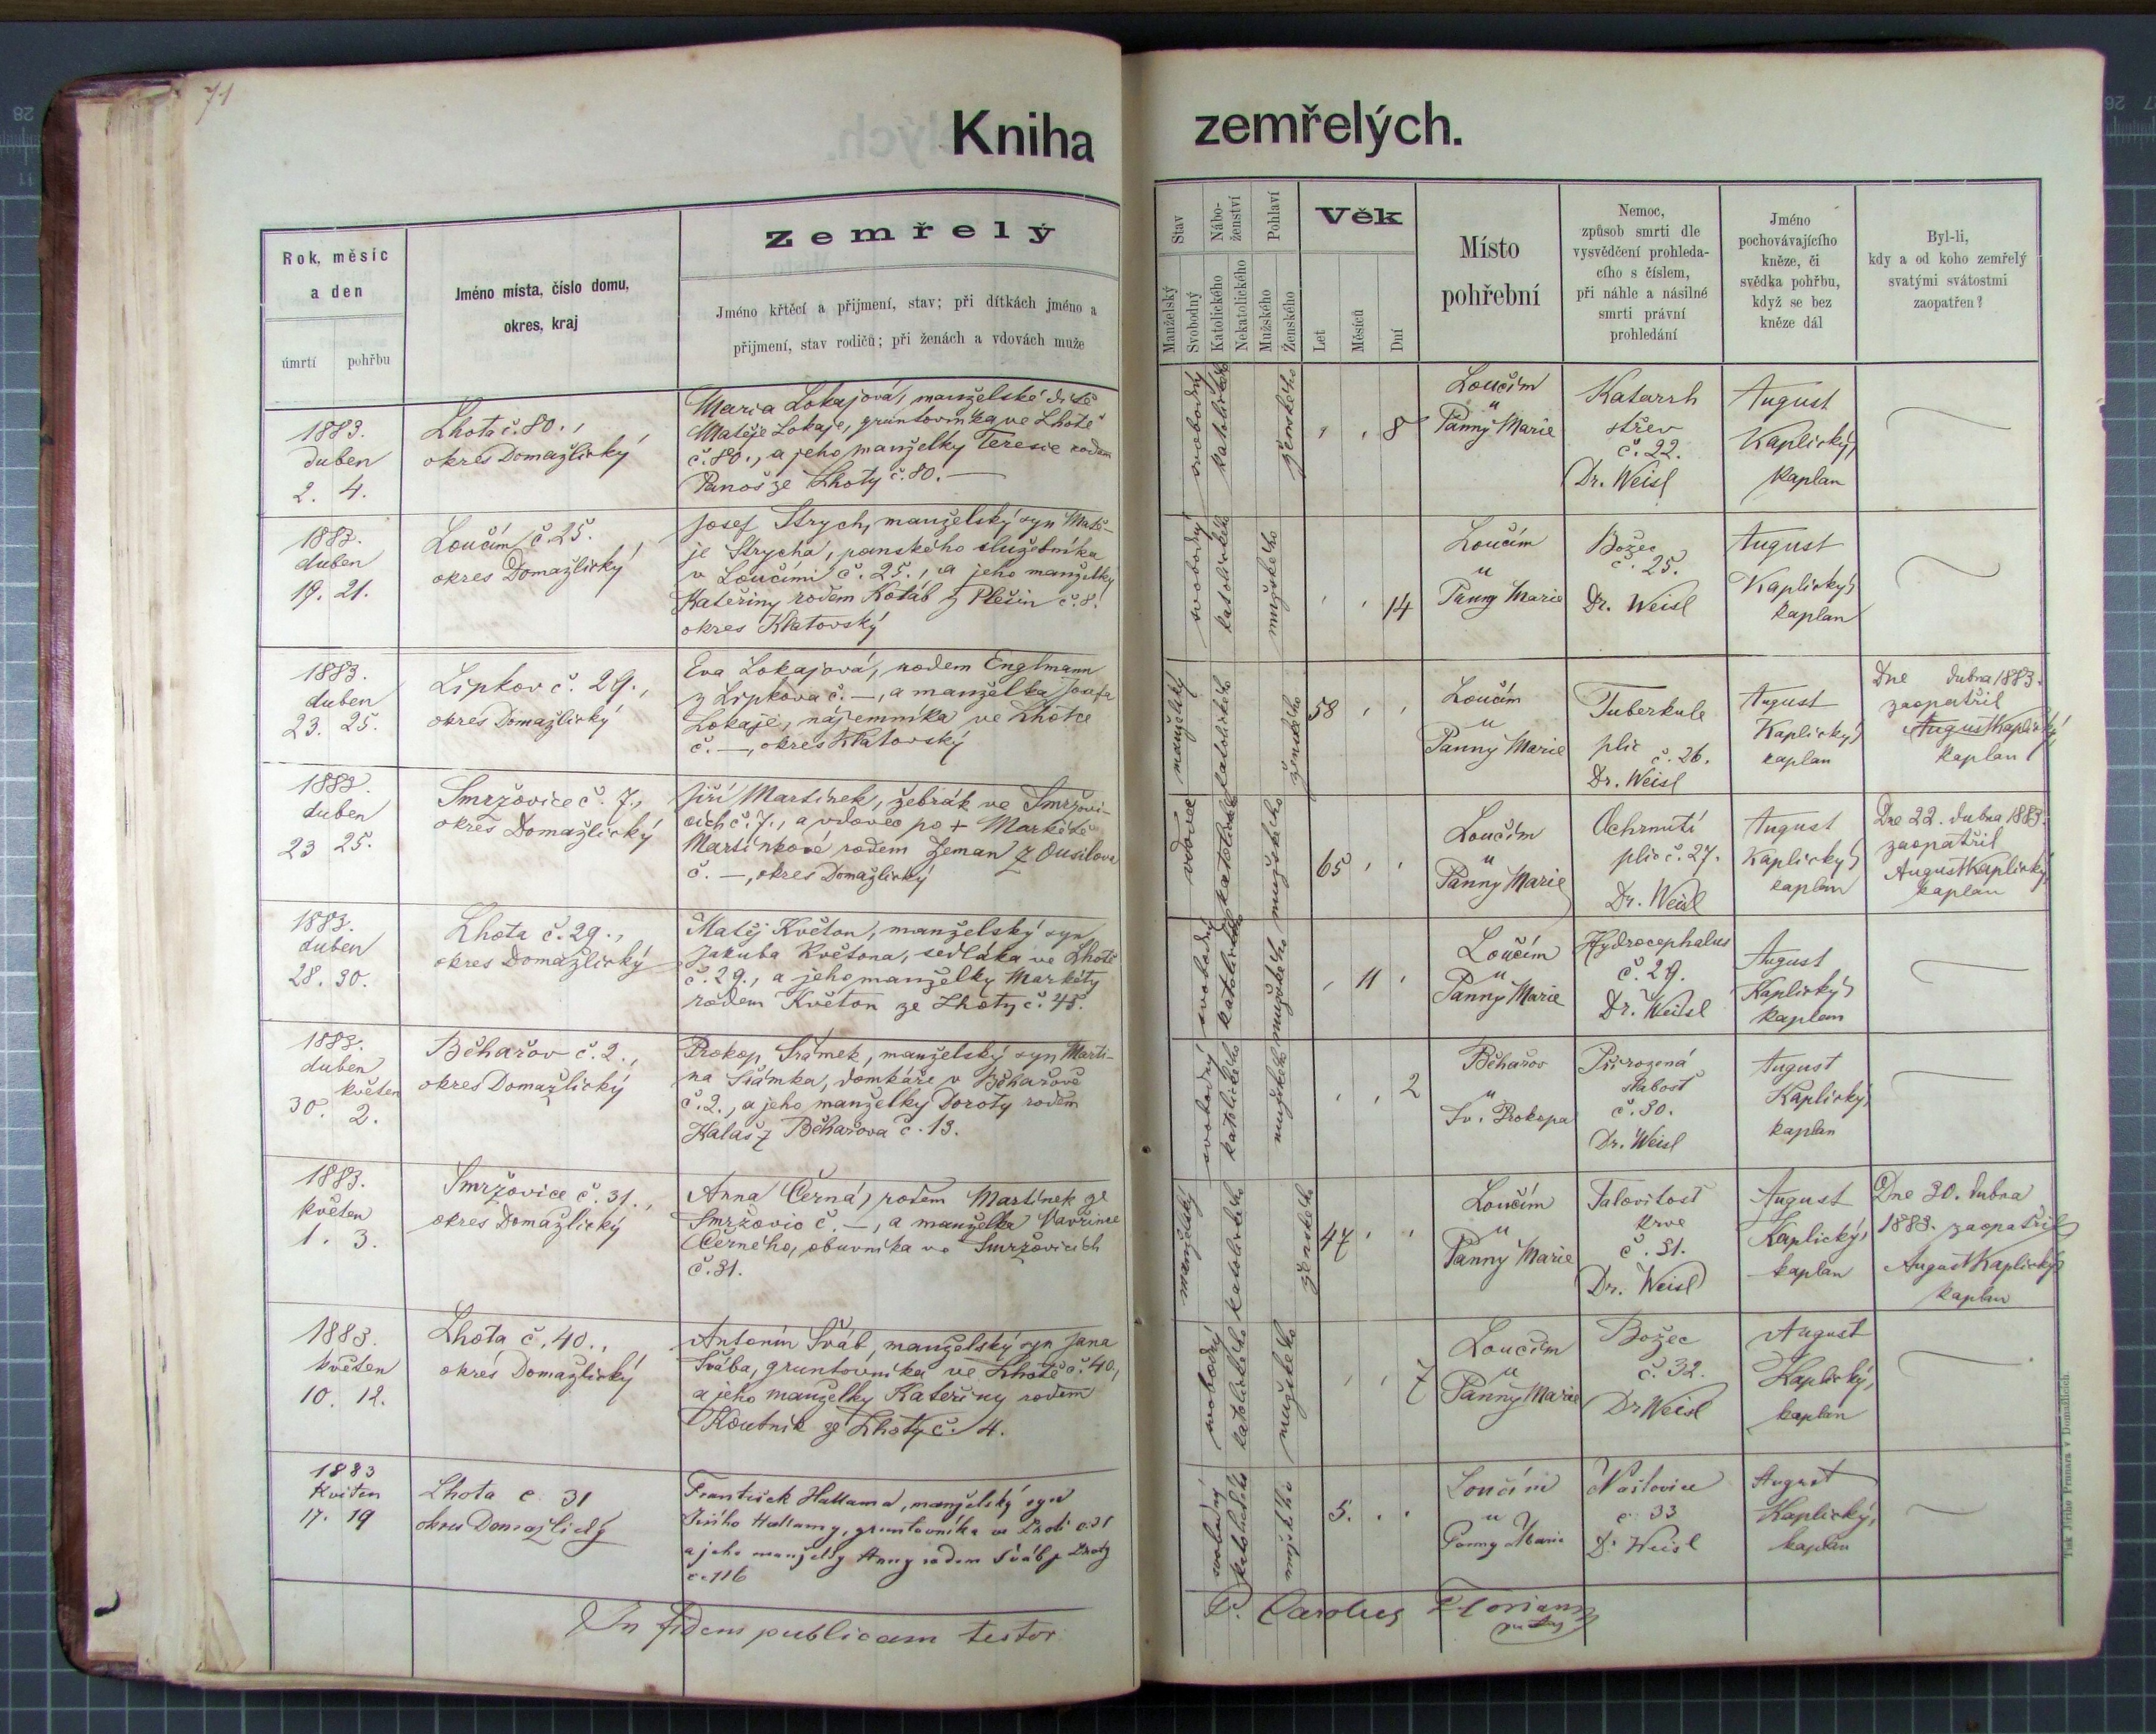 71
Kniha zemřelých.
Rok, měsíc
a den
úmrtí pohřbu
Jméno místa, číslo domu,
okres, kraj
Zemřelý
Jméno křtěcí a přijmení, stav; při dítkách jméno a
přijmení, stav rodičů; při ženách a vdovách muže
Stav
Manželský
Svobodný
Nábo-
ženství
Katolického
Nekatolického
Pohlaví
Mužského
Ženského
Věk
Let
Měsíců
Dní
Místo
pohřební
Nemoc,
způsob smrti dle
vysvědčení prohleda-
cího s číslem,
při náhle a násilné
smrti právní
prohledání
Jméno
pochovávajícího
kněze, či
svědka pohřbu,
když se bez
kněze dál
Byl-li,
kdy a od koho zemřelý
svatými svátostmi
zaopatřen?
1883.
duben
2. 4.
Lhota č. 80.,
okres Domažlický
Maria Lokajová, manželské dítě
Matěje Lokaje, gruntovníka ve Lhotě
č. 80., a jeho manželky Teresie rodem
Panoš ze Lhoty č. 80. —
svobodný
katolického
ženského
8
Loučím
u
Panny Marie
Katarrh
střev
č. 22.
Dr. Weisl
August
Kaplický,
kaplan
1883.
duben
19. 21.
Loučím č. 25.
okres Domažlický
Josef Strych, manželský syn Matě-
je Strycha, panského služebníka
v Loučími č. 25., a jeho manželky
Kateřiny rodem Kotáb z Plešin č. 8.
okres Klatovský
svobodný
katolického
mužského
14
Loučím
u
Panny Marie
Božec
č. 25.
Dr. Weisl
August
Kaplický,
kaplan
1883.
duben
23. 25.
Lipkov č. 29.,
okres Domažlický
Eva Lokajová, rodem Englmann
z Lipkova č. —, a manželka Josefa
Lokaje, nájemníka ve Lhotce
č. —, okres Klatovský
manželský
katolického
ženského
58
Loučím
u
Panny Marie
Tuberkule
plic
č. 26.
Dr. Weisl
August
Kaplický,
kaplan
Dne dubna 1883.
zaopatřil
August Kaplický,
kaplan
1883.
duben
23 25.
Smržovice č. 7.,
okres Domažlický
Jiří Martínek, žebrák ve Smržovi-
cích č. 7., a vdovec po + Markétě
Martínkové rodem Zeman z Ousilova
č. —, okres Domažlický
vdovec
katolického
mužského
65
Loučím
u
Panny Marie
Ochrnutí
plic č. 27.
Dr. Weisl
August
Kaplický,
kaplan
Dne 22. dubna 1883.
zaopatřil
August Kaplický,
kaplan
1883.
duben
28. 30.
Lhota č. 29.,
okres Domažlický
Matěj Květon, manželský syn
Jakuba Květona, sedláka ve Lhotě
č. 29., a jeho manželky Markéty
rodem Květon ze Lhoty č. 45.
svobodný
katolického
mužského
11
Loučím
u
Panny Marie
Hydrocephalus
č. 29.
Dr. Weisl
August
Kaplický,
kaplan
1883.
duben
květen
30. 2.
Běhařov č. 2.,
okres Domažlický
Prokop Šrámek, manželský syn Marti-
na Šrámka, domkáře v Běhařově
č. 2., a jeho manželky Doroty rodem
Halaš z Běhařova č. 13.
svobodný
katolického
mužského
2
Běhařov
u
Sv. Prokopa
Přirozená
slabost
č. 30.
Dr. Weisl
August
Kaplický,
kaplan
1883.
květen
1. 3.
Smržovice č. 31.,
okres Domažlický
Anna Černá, rodem Martínek ze
Smržovic č. —, a manželka Vavřince
Černého, obuvníka ve Smržovicích
č. 31.
manželský
katolického
ženského
47
Loučím
u
Panny Marie
Jalovitost
krve
č. 31.
Dr. Weisl
August
Kaplický,
kaplan
Dne 30. dubna
1883. zaopatřil
August Kaplický,
kaplan
1883.
květen
10. 12.
Lhota č. 40.,
okres Domažlický
Antonín Šváb, manželský syn Jana
Švába, gruntovníka ve Lhotě č. 40,
a jeho manželky Kateřiny rodem
Koutník ze Lhoty č. 4.
svobodný
katolického
mužského
7
Loučím
u
Panny Marie
Božec
č. 32.
Dr Weisl
August
Kaplický,
kaplan
1883
Květen
17. 19
Lhota č. 31
okres Domažlický
František Hallama, manželský syn
Jiřího Hallamy, gruntovníka ve Lhotě č. 31
a jeho manželky Anny rodem Šváb z Lhoty
č. 116
svobodný
katolického
mužského
5.
Loučím
u
Panny Marie
č. 33
Dr. Weisl
August
Kaplický,
kaplan
In fidem publicam testor
P. Carolus Florian
Tisk Jiřího Prunara v Domažlicích.